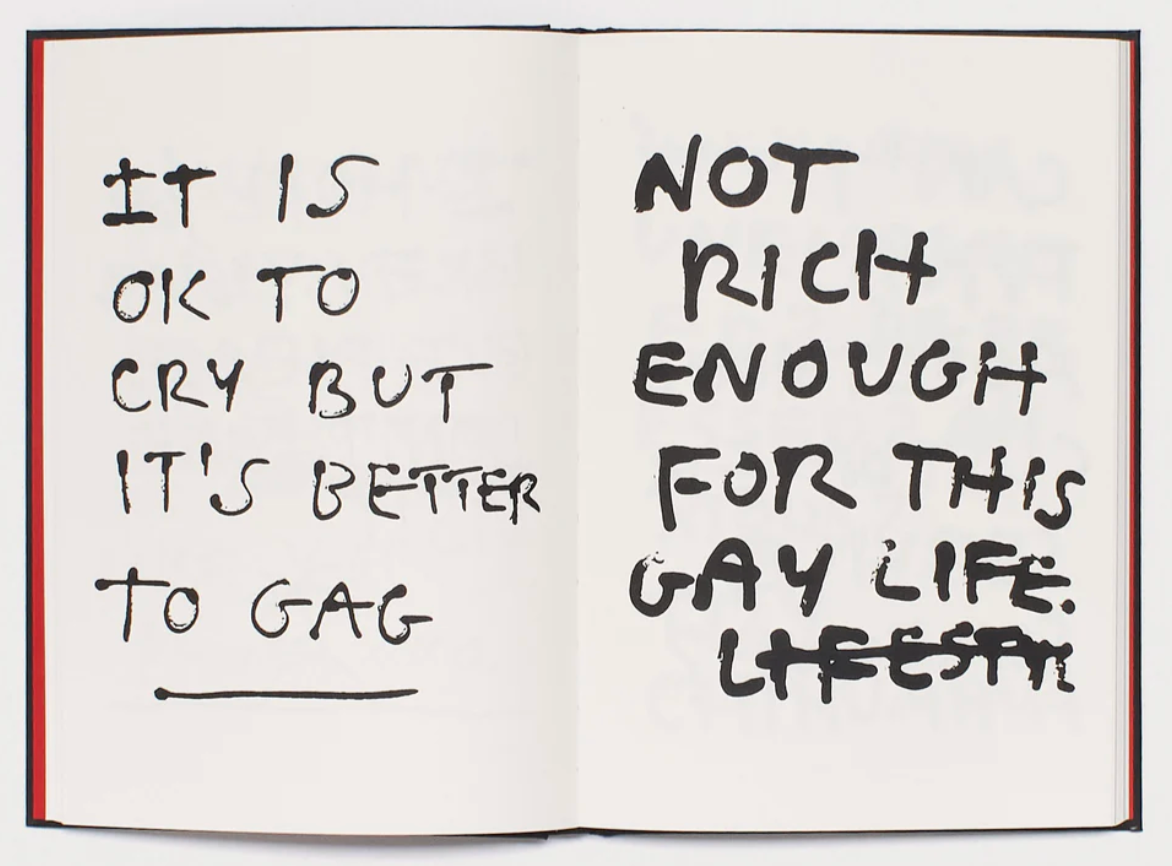 IT IS
OK TO
CRY BUT
IT'S BETTER
TO GAG
NOT
RICH
ENOUGH
FOR THIS
GAY LIFE.